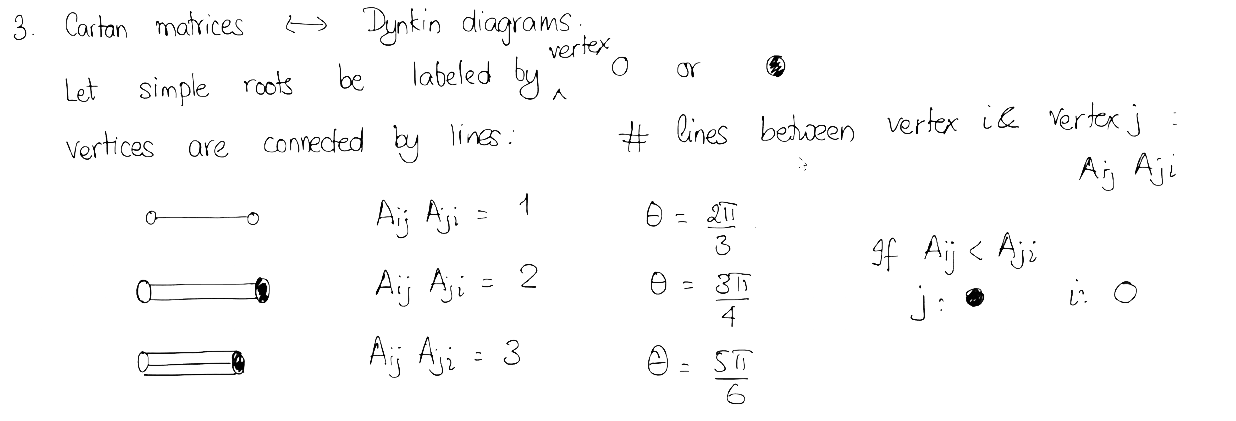 3. Cartan matrices ↔ Dynkin diagrams.
Let simple roots be labeled by ^ vertex ○ or ●
vertices are connected by lines: # lines between vertex i & vertex j :
Aij Aji
Aij Aji = 1 θ = 2π/3
If Aij < Aji
Aij Aji = 2 θ = 3π/4
j: ● i: ○
Aij Aji = 3 θ = 5π/6